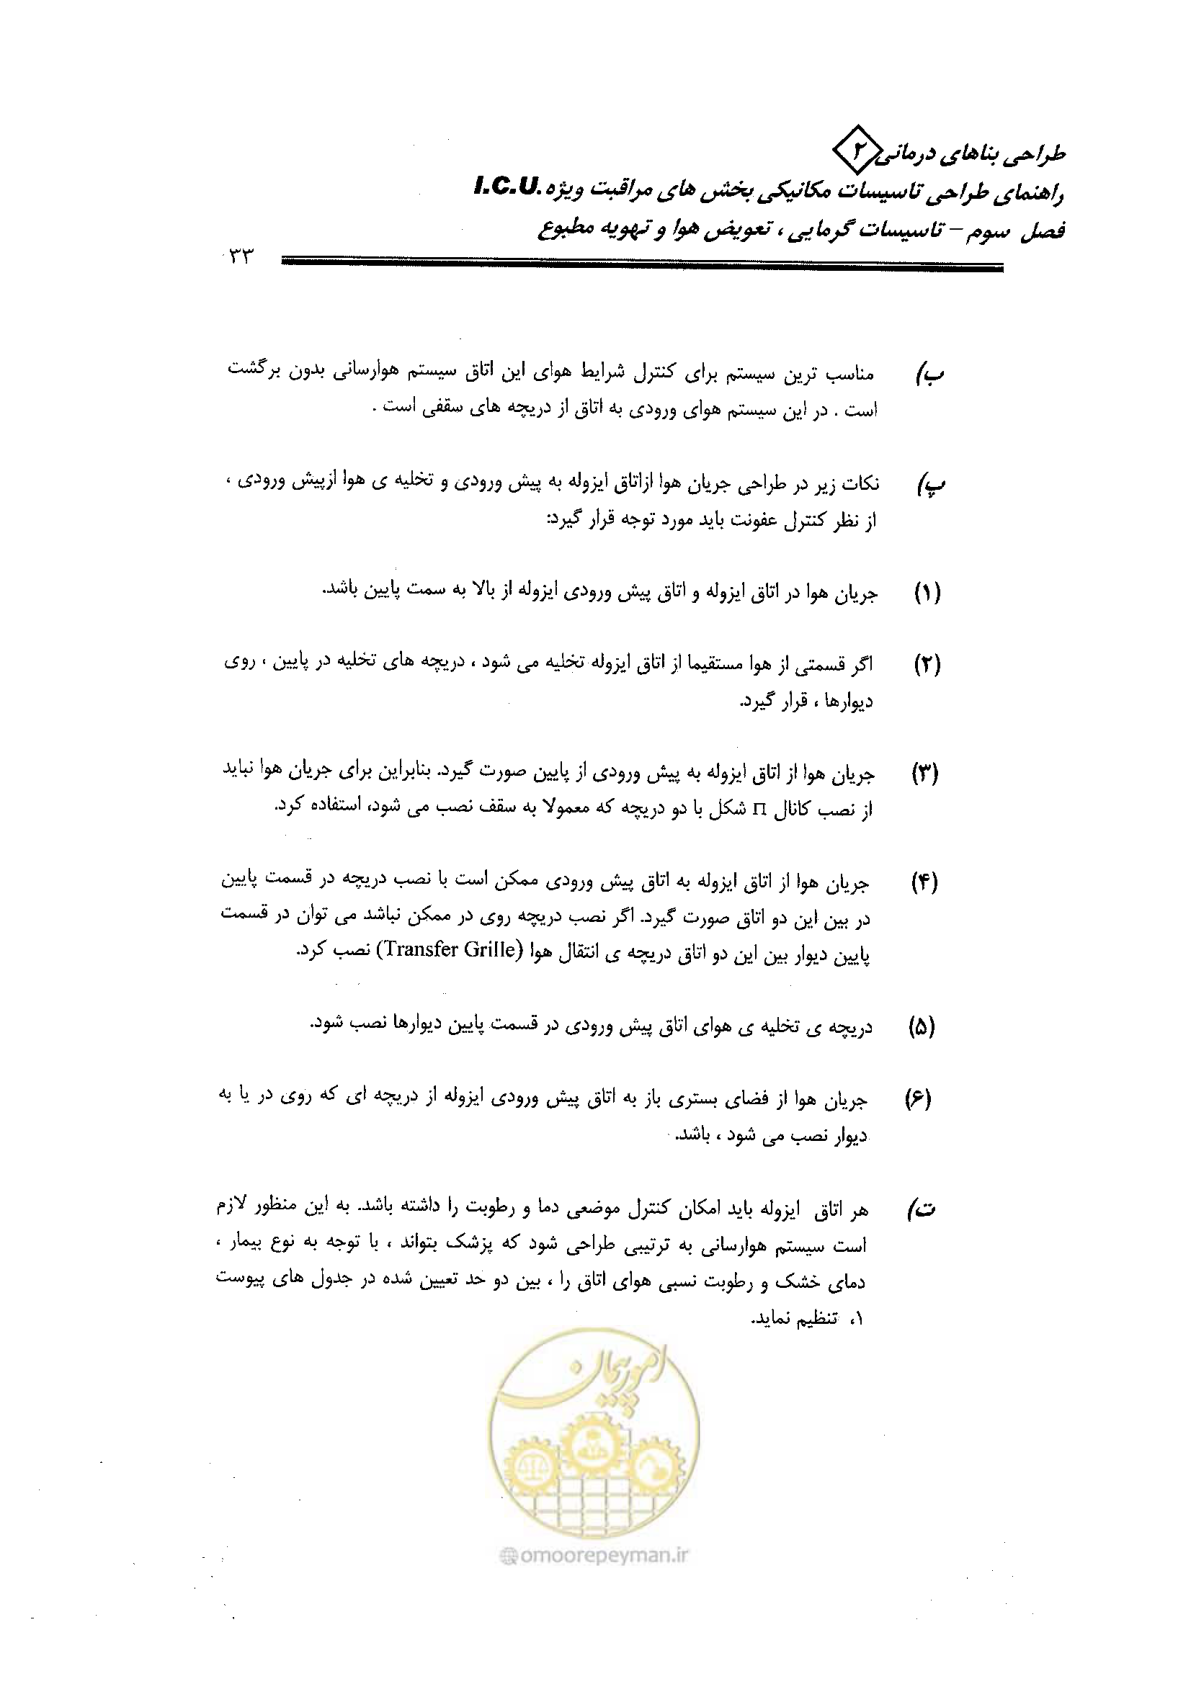 طراحی بناهای درمانی ۲
راهنمای طراحی تاسیسات مکانیکی بخش های مراقبت ویژه I.C.U.
فصل سوم – تاسیسات گرمایی ، تعویض هوا و تهویه مطبوع
۳۳
ب) مناسب ترین سیستم برای کنترل شرایط هوای این اتاق سیستم هوارسانی بدون برگشت
است . در این سیستم هوای ورودی به اتاق از دریچه های سقفی است .
پ) نکات زیر در طراحی جریان هوا ازاتاق ایزوله به پیش ورودی و تخلیه ی هوا ازپیش ورودی ،
از نظر کنترل عفونت باید مورد توجه قرار گیرد:
(۱) جریان هوا در اتاق ایزوله و اتاق پیش ورودی ایزوله از بالا به سمت پایین باشد.
(۲) اگر قسمتی از هوا مستقیما از اتاق ایزوله تخلیه می شود ، دریچه های تخلیه در پایین ، روی
دیوارها ، قرار گیرد.
(۳) جریان هوا از اتاق ایزوله به پیش ورودی از پایین صورت گیرد. بنابراین برای جریان هوا نباید
از نصب کانال П شکل با دو دریچه که معمولا به سقف نصب می شود، استفاده کرد.
(۴) جریان هوا از اتاق ایزوله به اتاق پیش ورودی ممکن است با نصب دریچه در قسمت پایین
در بین این دو اتاق صورت گیرد. اگر نصب دریچه روی در ممکن نباشد می توان در قسمت
پایین دیوار بین این دو اتاق دریچه ی انتقال هوا (Transfer Grille) نصب کرد.
(۵) دریچه ی تخلیه ی هوای اتاق پیش ورودی در قسمت پایین دیوارها نصب شود.
(۶) جریان هوا از فضای بستری باز به اتاق پیش ورودی ایزوله از دریچه ای که روی در یا به
دیوار نصب می شود ، باشد.
ت) هر اتاق ایزوله باید امکان کنترل موضعی دما و رطوبت را داشته باشد. به این منظور لازم
است سیستم هوارسانی به ترتیبی طراحی شود که پزشک بتواند ، با توجه به نوع بیمار ،
دمای خشک و رطوبت نسبی هوای اتاق را ، بین دو حد تعیین شده در جدول های پیوست
۱، تنظیم نماید.
امور پیمان
@omoorepeyman.ir